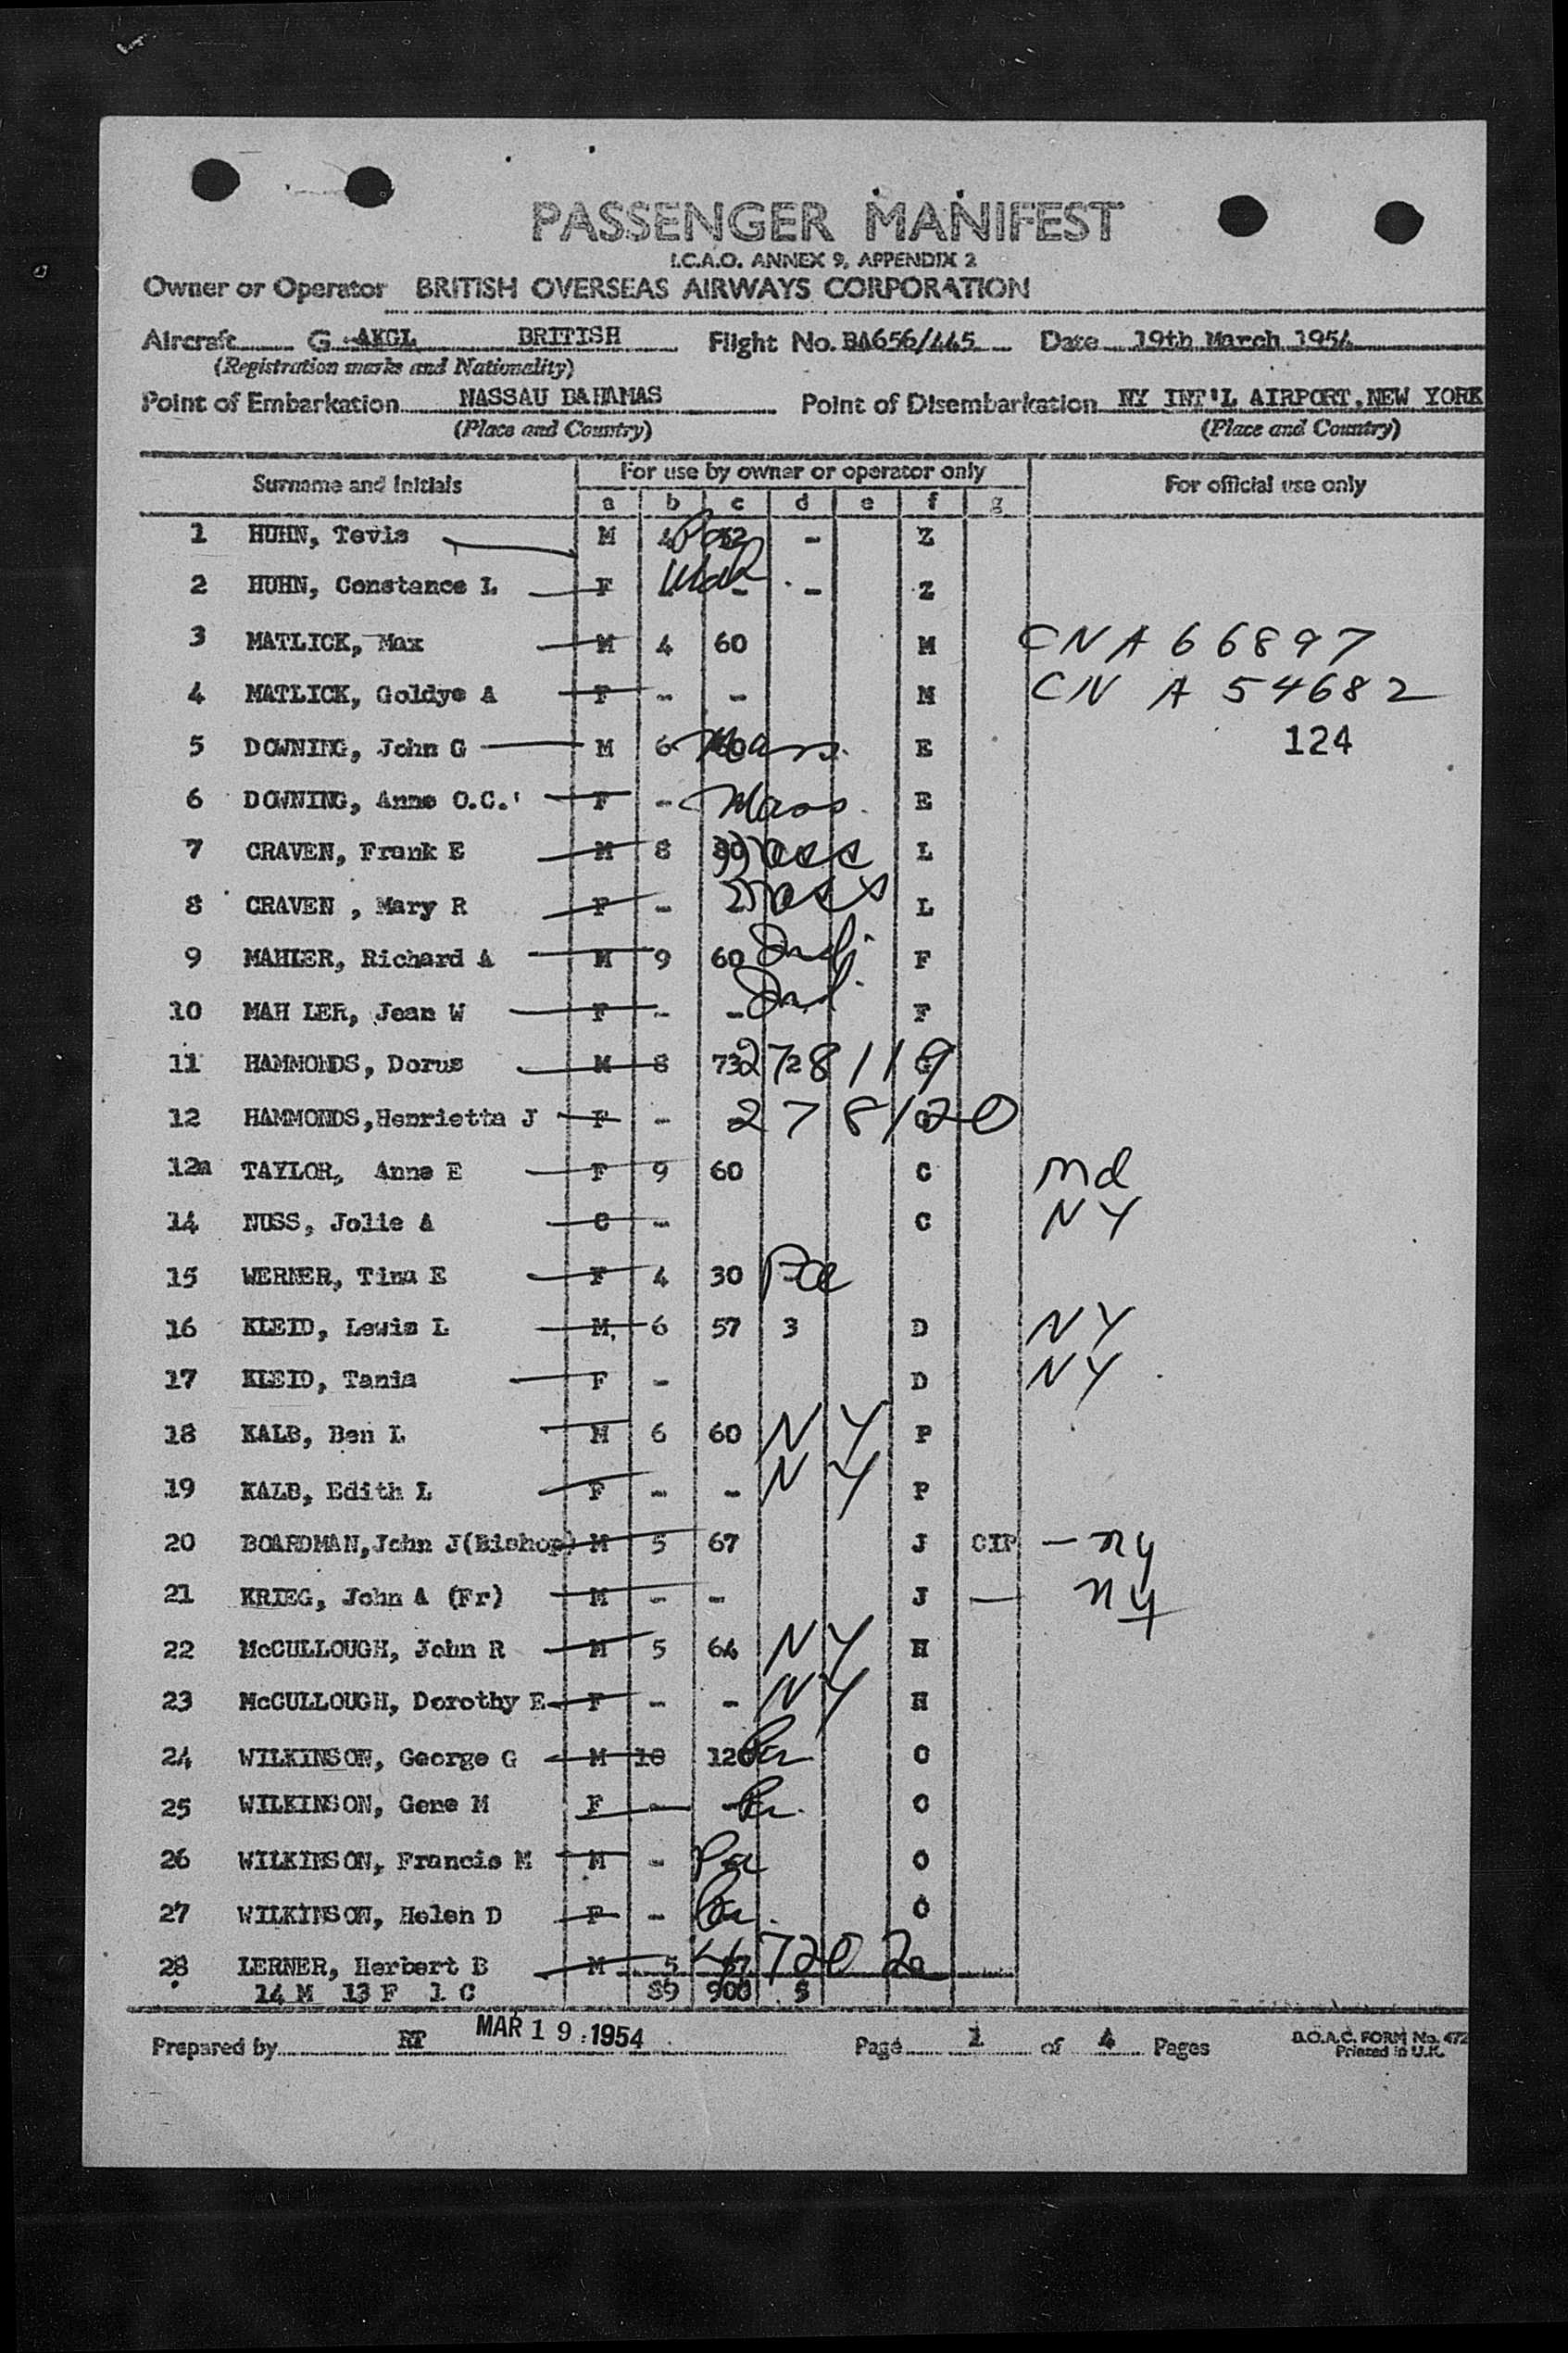 PASSENGER MANIFEST
I.C.A.O. ANNEX 9, APPENDIX 2
Owner or Operator BRITISH OVERSEAS AIRWAYS CORPORATION
Aircraft G -AKGL BRITISH Flight No. BA656/445 Date 19th March 1954
(Registration marks and Nationality)
Point of Embarkation NASSAU BAHAMAS Point of Disembarkation NY INT'L AIRPORT,NEW YORK
(Place and Country) (Place and Country)
Surname and Initials For use by owner or operator only For official use only
a b c d e f g
1 HUHN, Tevis M 4 Pa - Z
2 HUHN, Constance L F - - Z
3 MATLICK, Max M 4 60 M CN A 66897
4 MATLICK, Goldye A F - - M CN A 54682
5 DOWNING, John G M 6 Mass. E 124
6 DOWNING, Anne O.C. F - Mass. E
7 CRAVEN, Frank E M 8 80 Mass L
8 CRAVEN , Mary R F - Mass L
9 MAHLER, Richard A M 9 60 Ind. F
10 MAH LER, Jean W F - - Ind. F
11 HAMMONDS, Dorus M 8 73 2 278119 G
12 HAMMONDS,Henrietta J F - 278120 G
12a TAYLOR, Anne E F 9 60 C Md
14 NUSS, Jolie A C - C NY
15 WERNER, Tina E F 4 30 Pa
16 KLEID, Lewis L M. 6 57 3 D NY
17 KLEID, Tania F - D NY
18 KALB, Ben L M 6 60 NY P
19 KALB, Edith L F - - NY P
20 BOARDMAN,John J(Bishop) M 5 67 J CIP - ny
21 KRIEG, John A (Fr) M - - J — ny
22 McCULLOUGH, John R M 5 64 NY H
23 McCULLOUGH, Dorothy E F - - NY H
24 WILKINSON, George G M 10 120 Pa O
25 WILKINSON, Gene M F - - Pa. O
26 WILKINSON, Francis M M - Pa O
27 WILKINSON, Helen D F - Pa. O
28 LERNER, Herbert B M 5 47202
14 M 13 F 1 C 89 900 5
Prepared by RT MAR 19 1954 Page 1 of 4 Pages B.O.A.C. FORM No. 472
Printed in U.K.